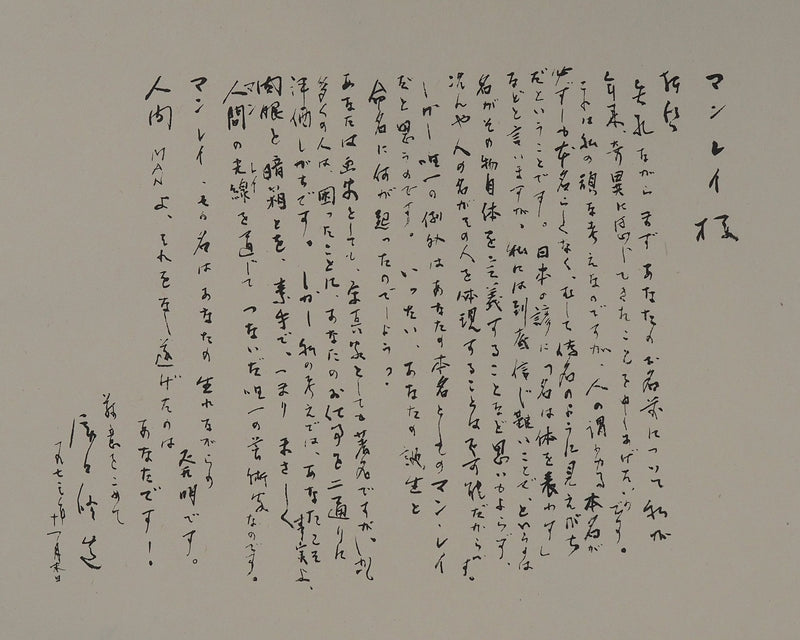 マンレイ様
拝啓
失礼ながらまずあなたのお名前について私が
年来、奇異に感じてきたことを申しあげたいのです。
それは私の頑な考えなのですが、人の謂わゆる本名が
必ずしも本名らしくなく、むしろ偽名のように見えがち
だということです。日本の諺に「名は体を表わす」
などと言いますが、私には到底信じ難いことで、というのは
名がその物自体を定義することなど思いもよらず、
況んや人の名がその人を体現することは不可能だからです。
しかし唯一の例外はあなたの本名としてのマン・レイ
だと思うのです。いったい、あなたの誕生と
命名に何が起ったのでしょう?
あなたは画家としても、写真家としても著名ですが、
多くの人は、困ったことに、あなたのお仕事を二通りに
評価しがちです。しかし私の考えでは、あなたこそ
肉眼と暗箱とを、素手で、つまりまさしく事実上、
人間マンの光線レイを通じてつないだ唯一の芸術家なのです。
マンレイ、その名はあなたの生れながらの
発明です。
人間MANよ、それをなし遂げたのは
あなたです!
敬意をこめて
瀧口修造